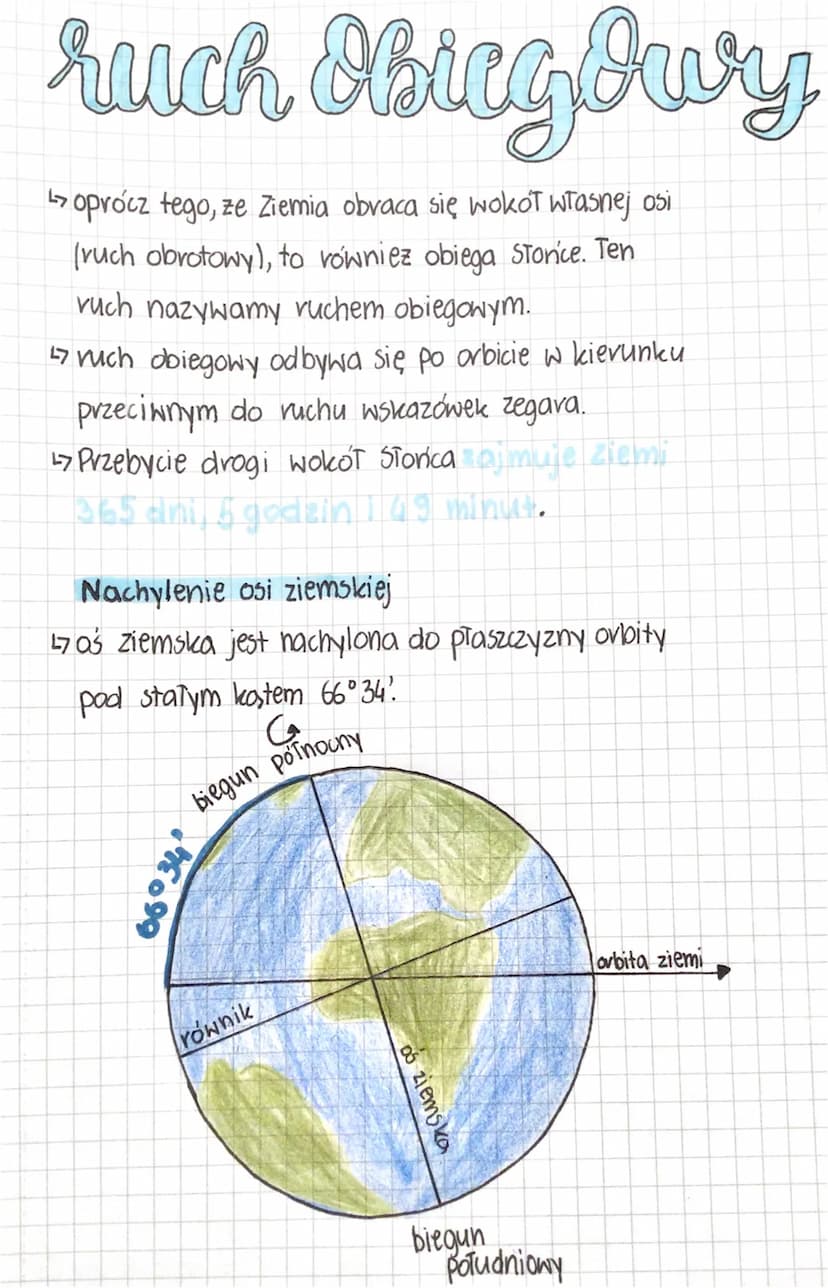 ruch obiegowy
↳ oprócz tego, że Ziemia obraca się wokół własnej osi
(ruch obrotowy), to również obiega Słońce. Ten
ruch nazywamy ruchem obiegowym.
↳ ruch obiegowy odbywa się po orbicie w kierunku
przeciwnym do ruchu wskazówek zegara.
↳ Przebycie drogi wokół Słońca zajmuje ziemi
365 dni, 5 godzin i 49 minut.
Nachylenie osi ziemskiej
↳ oś ziemska jest nachylona do płaszczyzny orbity
pod stałym kątem 66°34'.
biegun północny
66°34'
orbita ziemi
równik
oś ziemska
biegun
południowy